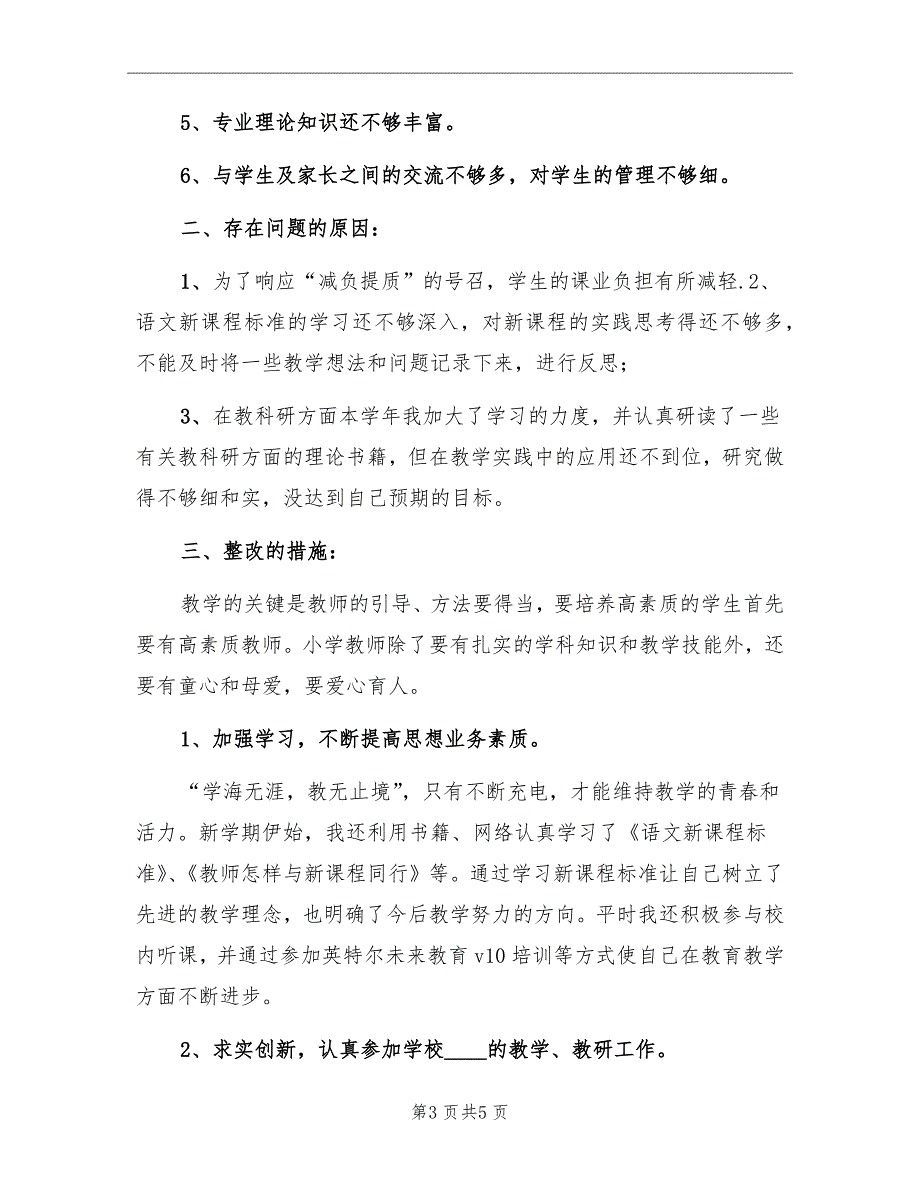 5、专业理论知识还不够丰富。
6、与学生及家长之间的交流不够多，对学生的管理不够细。
二、存在问题的原因：
1、为了响应“减负提质”的号召，学生的课业负担有所减轻.2、
语文新课程标准的学习还不够深入，对新课程的实践思考得还不够多，
不能及时将一些教学想法和问题记录下来，进行反思；
3、在教科研方面本学年我加大了学习的力度，并认真研读了一些
有关教科研方面的理论书籍，但在教学实践中的应用还不到位，研究做
得不够细和实，没达到自己预期的目标。
三、整改的措施：
教学的关键是教师的引导、方法要得当，要培养高素质的学生首先
要有高素质教师。小学教师除了要有扎实的学科知识和教学技能外，还
要有童心和母爱，要爱心育人。
1、加强学习，不断提高思想业务素质。
“学海无涯，教无止境”，只有不断充电，才能维持教学的青春和
活力。新学期伊始，我还利用书籍、网络认真学习了《语文新课程标
准》、《教师怎样与新课程同行》等。通过学习新课程标准让自己树立了
先进的教学理念，也明确了今后教学努力的方向。平时我还积极参与校
内听课，并通过参加英特尔未来教育 v10 培训等方式使自己在教育教学
方面不断进步。
2、求实创新，认真参加学校____的教学、教研工作。
第3 页共5 页